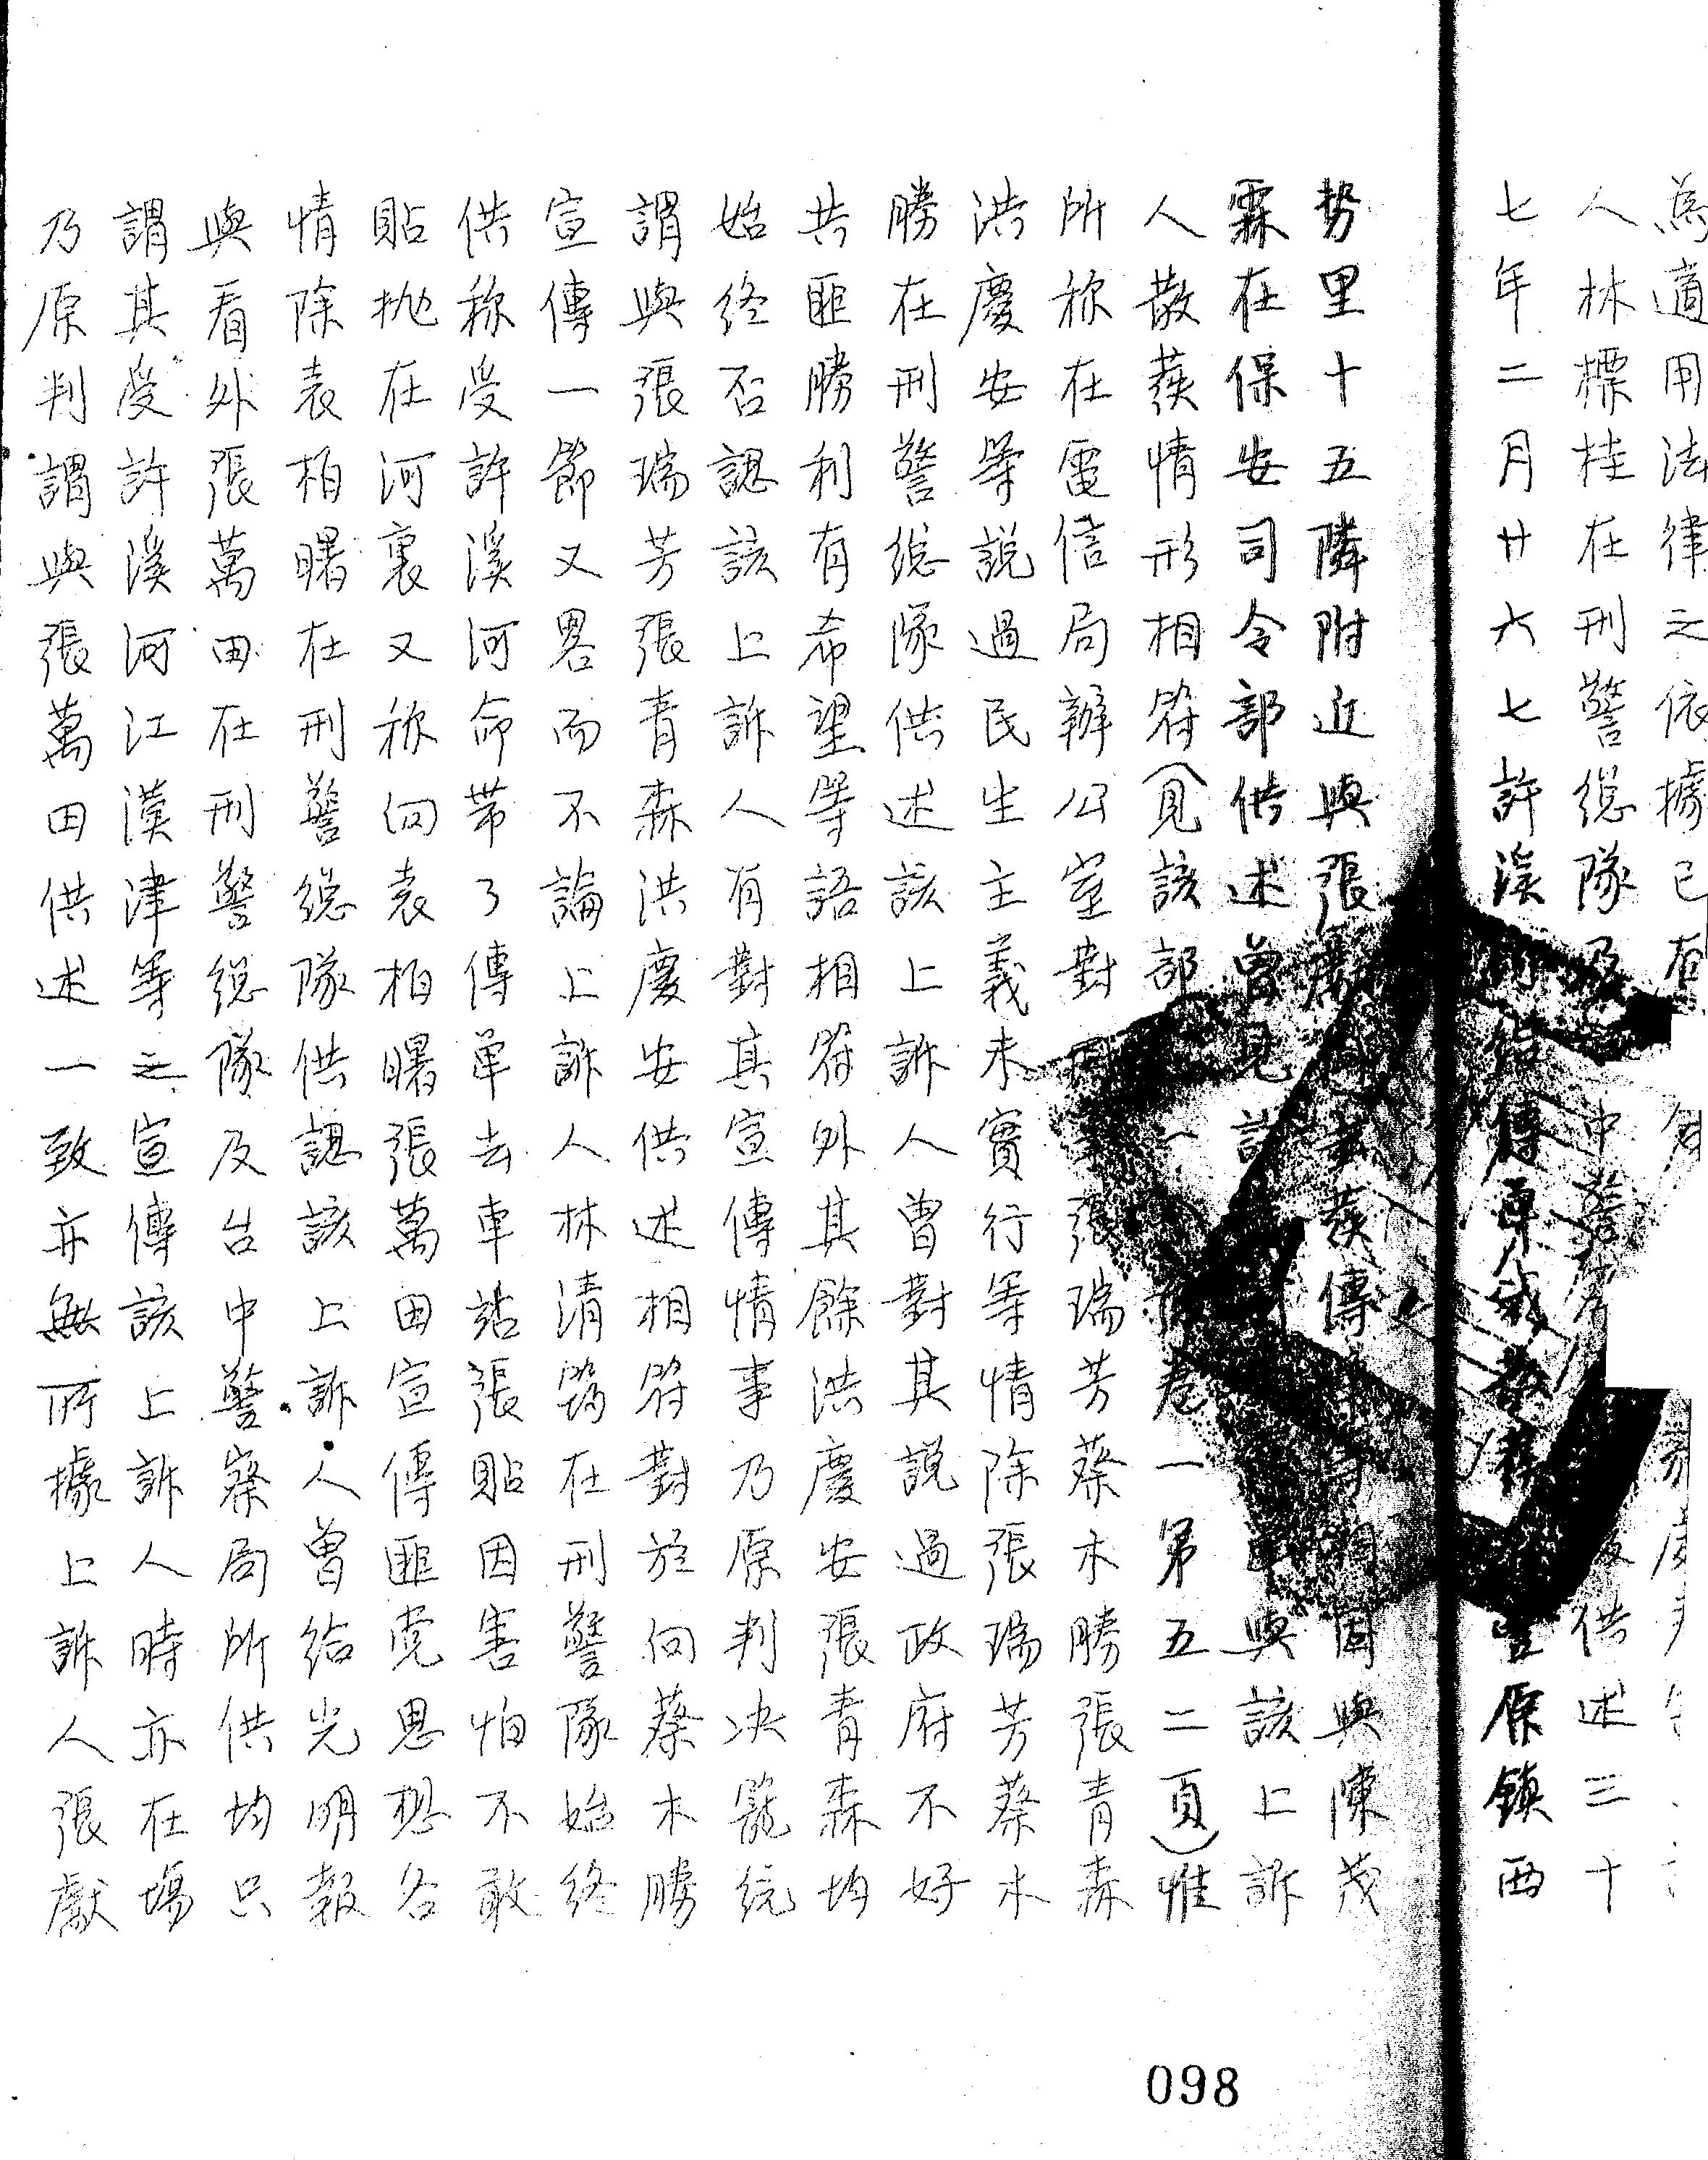 為適用法律之依據已有
人林標桂在刑警總隊及 中警 供述三十
七年二月廿六七許溪 給傳單 豐原鎮西
勢里十五隣附近與張獻 發傳單 因與陳茂
霖在保安司令部供述曾見許 與該上訴
人散發情形相符（見該部 卷一第五二頁）惟
所称在電信局辦公室對 張瑞芳蔡木勝張青森
洪慶安等說過民生主義未實行等情除張瑞芳蔡木
勝在刑警總隊供述該上訴人曾對其說過政府不好
共匪勝利有希望等語相符外其餘洪慶安張青森均
始終否認該上訴人有對其宣傳情事乃原判决籠統
謂與張瑞芳張青森洪慶安供述相符對於向蔡木勝
宣傳一節又畧而不論上訴人林清 在刑警隊始終
供称受許溪河命帶了傳單去車站張貼因害怕不敢
貼抛在河裏又称向袁柏曙張萬田宣傳匪党思想各
情除袁柏曙在刑警總隊供認該上訴人曾給光明報
與看外張萬田在刑警總隊及台中警察局所供均只
謂其受許溪河江漢津等之宣傳該上訴人時亦在場
乃原判謂與張萬田供述一致亦無所據上訴人張獻
098